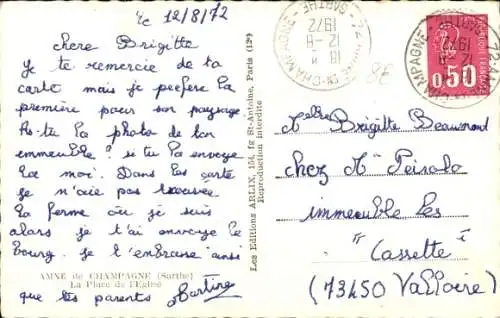 le 12/8/72
chere Brigitte
je te remercie de ta
carte mais je préfère la
première pour son paysage.
As-tu la photo de ton
immeuble? si tu la envoye
la moi. Dans les carte
je n'aie pas trouvée
la ferme où je suis
alors je t'ai envoyé le
bourg. je t'embrasse ainsi
AMNE de CHAMPAGNE (Sarthe)
La Place de l'Eglise
que tes parents Martine
Les Editions ARLIX, 154, fg St-Antoine, Paris (12e)
Reproduction interdite
CHAMPAGNE
SARTHE
18 H
12 - 8
1972
0,50
8E
Melle Brigitte Beaumond
chez Mr Peirolo
immeuble les
" Cassette "
(73450 Valloire)